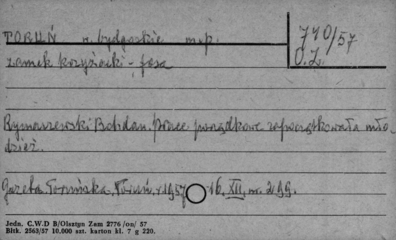 TORUŃ w. bydgoskie m.p.
740/57
O.Z.
zamek krzyżacki - fosa
Rymaszewski Bohdan. Prace porządkowe zapoczątkowała mło-
dzież.
Gazeta Toruńska, Toruń, r. 1957 16. XII, nr. 299.
Jedn. C.W.D B/Olsztyn Zam 2776 /on/ 57
Bltk. 2563/57 10.000 szt. karton kl. 7 g 220.